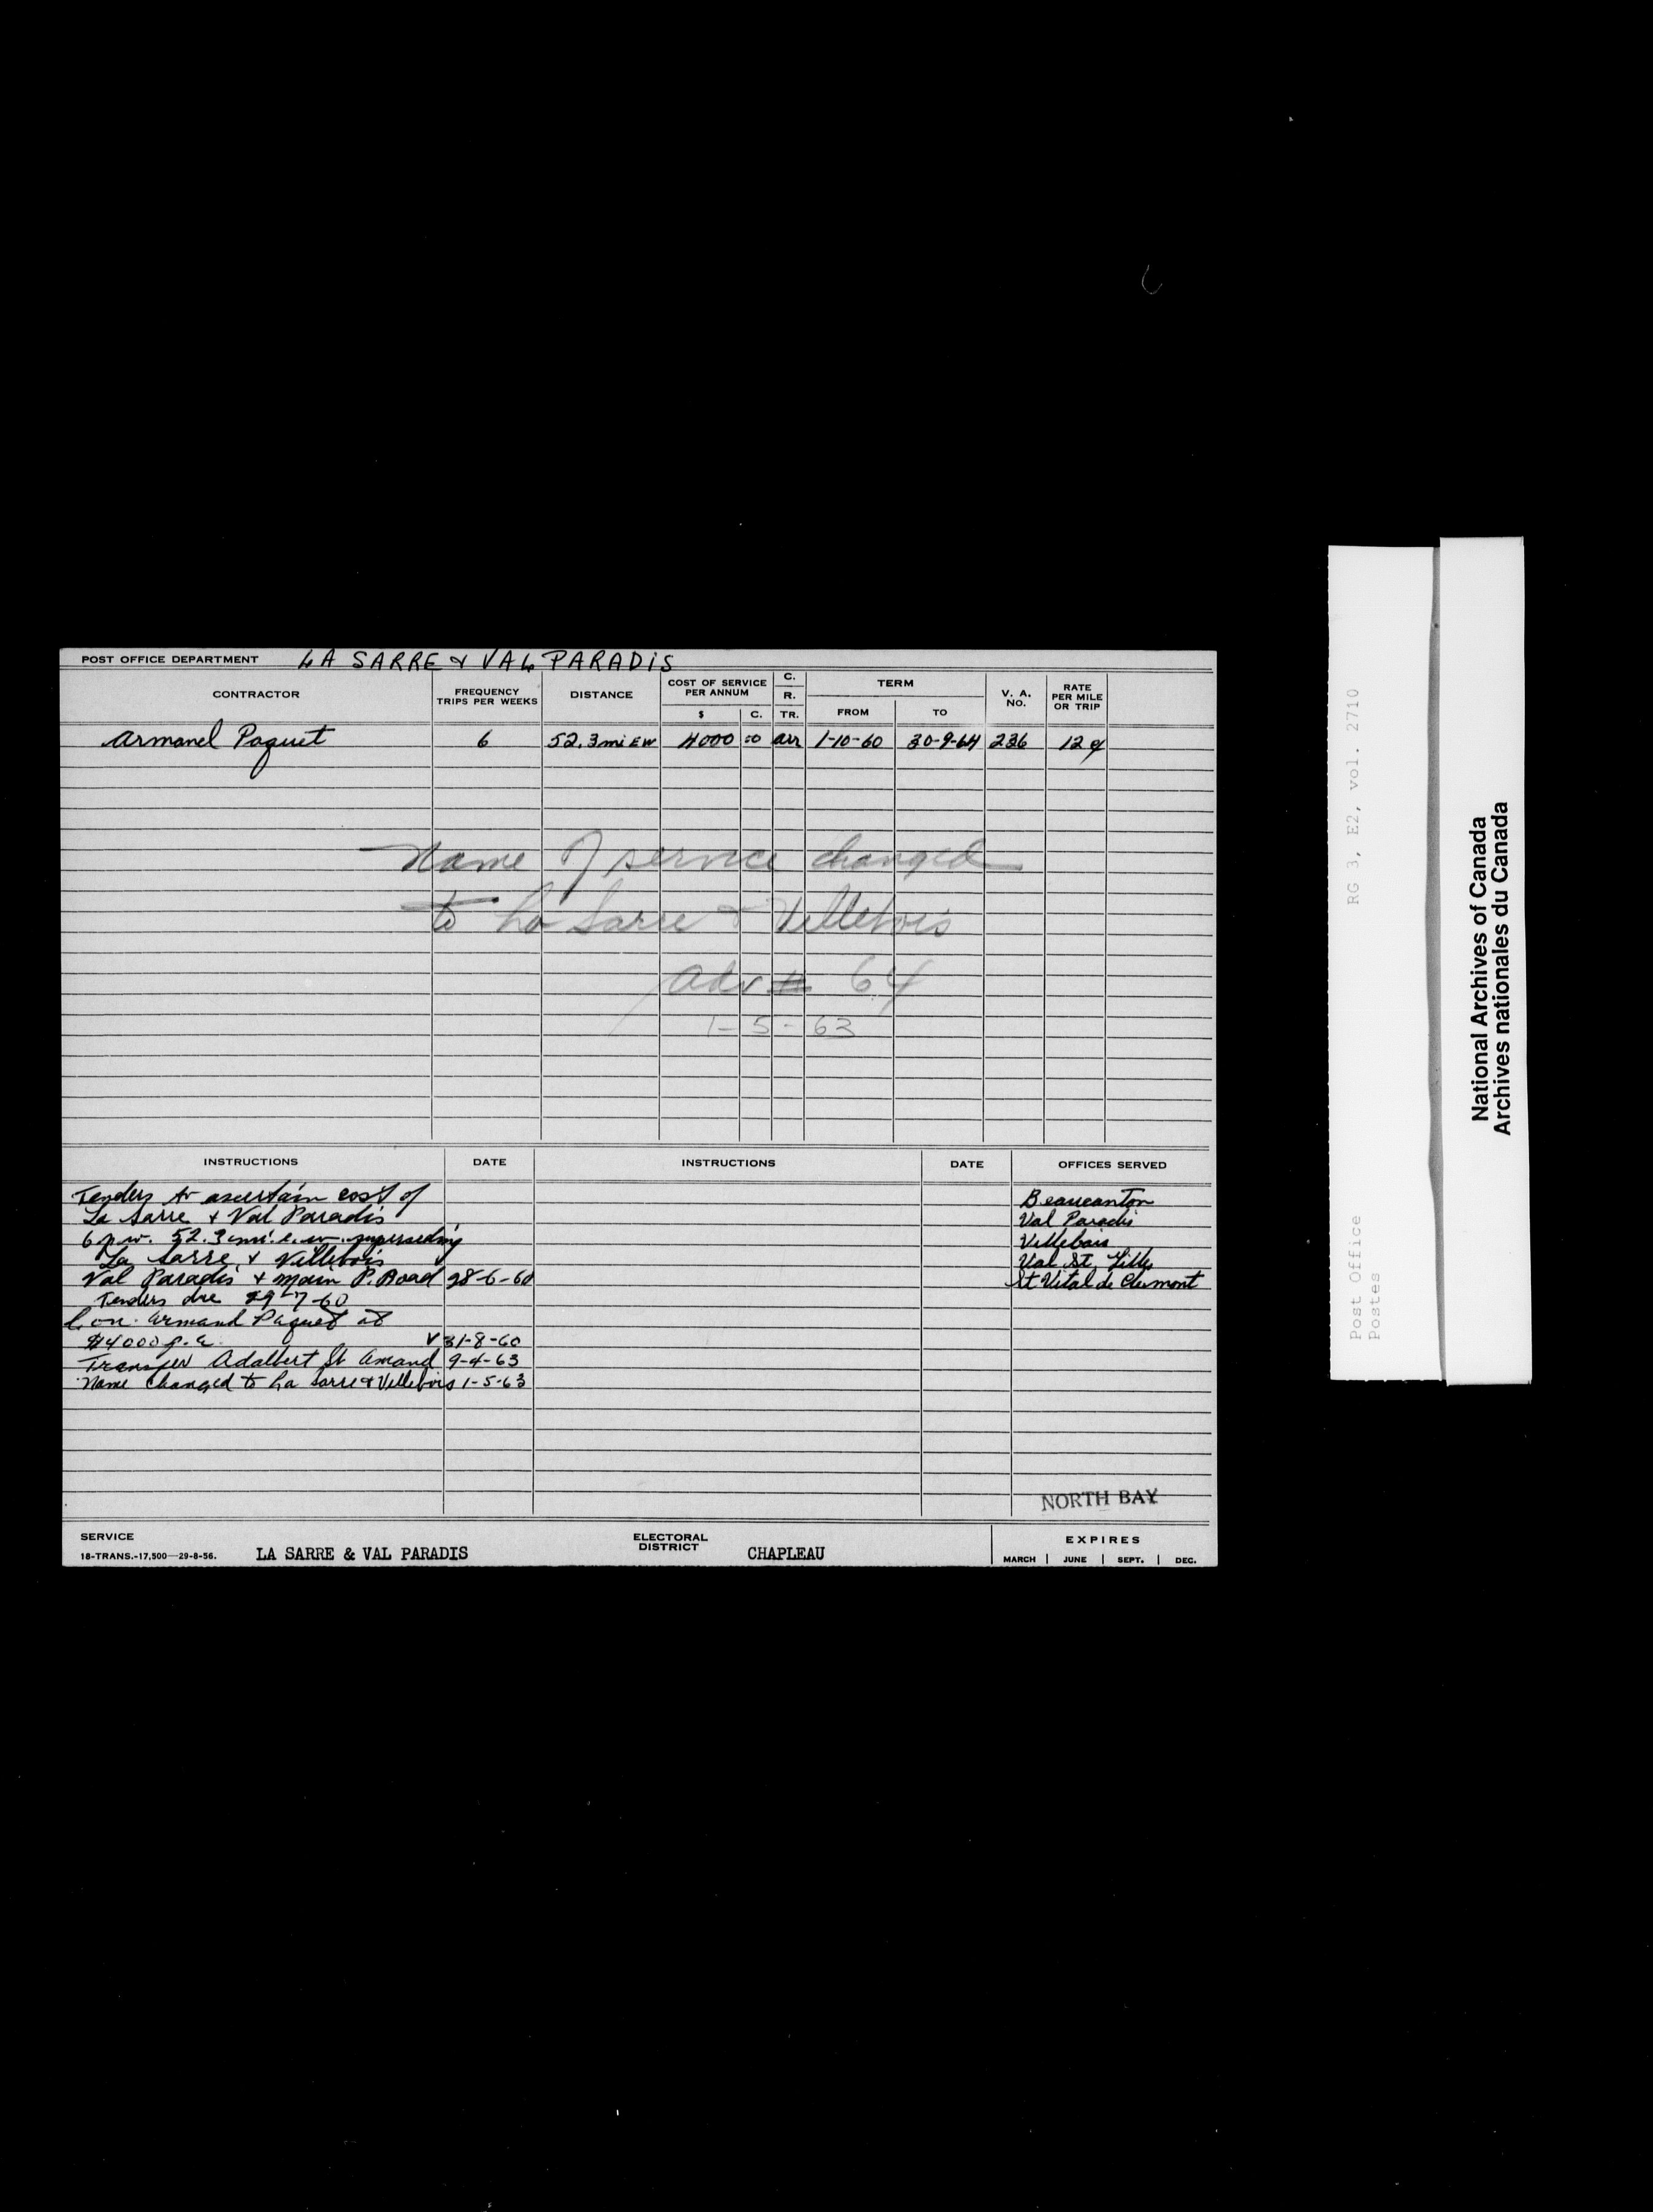 POST OFFICE DEPARTMENT LA SARRE & VAL PARADIS
CONTRACTOR FREQUENCY TRIPS PER WEEKS DISTANCE COST OF SERVICE PER ANNUM $ C. C. R. TR. TERM FROM TO V. A. No. RATE PER MILE OR TRIP
Armand Paquet 6 52.3 mi EW 4000 00 arr 1-10-60 30-9-64 236 12 ¢
Name of service changed
to La Sarre & Villebois
adv # 64
1-5-63
INSTRUCTIONS DATE INSTRUCTIONS DATE OFFICES SERVED
Tenders to ascertain cost of
La Sarre & Val Paradis
6 p.w. 52.3 mi. e.w. superseding
La Sarre & Villebois
Val Paradis & Main P. Road 28-6-60
Tenders due 29-7-60
Con. Armand Paquet at
$4000 p.a. V 31-8-60
Transfer Adalbert St Amand 9-4-63
Name changed to La Sarre & Villebois 1-5-63
Beaucanton
Val Paradis
Villebois
Val St Gilles
St Vital de Clermont
NORTH BAY
SERVICE
18-TRANS.-17,500—29-8-56. LA SARRE & VAL PARADIS
ELECTORAL DISTRICT CHAPLEAU
EXPIRES
MARCH | JUNE | SEPT. | DEC.
Post Office
Postes
RG 3, E2, vol. 2710
National Archives of Canada
Archives nationales du Canada